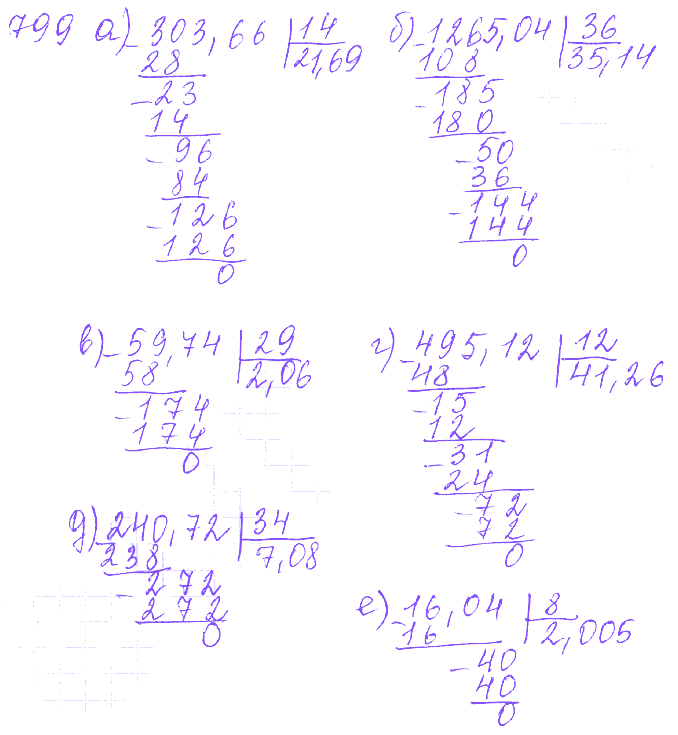 799 а) - 303,66 | 14
28 | 21,69
- 23
14
- 96
84
- 126
126
0
б) - 1265,04 | 36
108 | 35,14
- 185
180
- 50
36
- 144
144
0
в) - 59,74 | 29
58 | 2,06
- 174
174
0
г) - 495,12 | 12
48 | 41,26
- 15
12
- 31
24
- 72
72
0
д) - 240,72 | 34
238 | 7,08
- 272
272
0
е) - 16,04 | 8
16 | 2,005
- 40
40
0